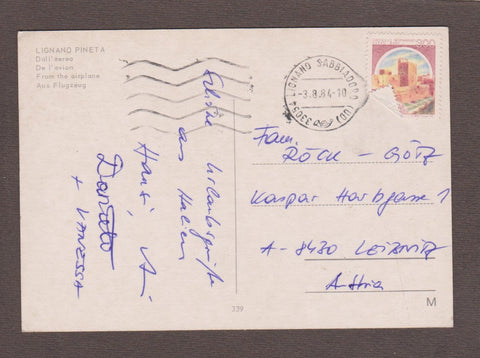 LIGNANO PINETA
Dall'aereo
De l'avion
From the airplane
Aus Flugzeug
33054 LIGNANO SABBIADORO (UD)
-3.8.84-10
Schöne Urlaubsgrüße
aus Italien
Hansi,
Donato
+ VANESSA
Fam.
RÖCK - GÖTZ
Kaspar Harbgasse 1
A-8430 LEIBNITZ
Austria
339
M